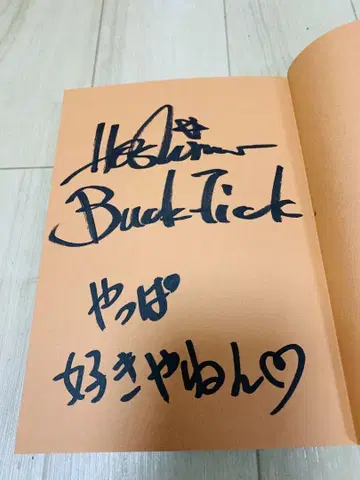 Buck-Tick
やっぱ
好きやねん♡